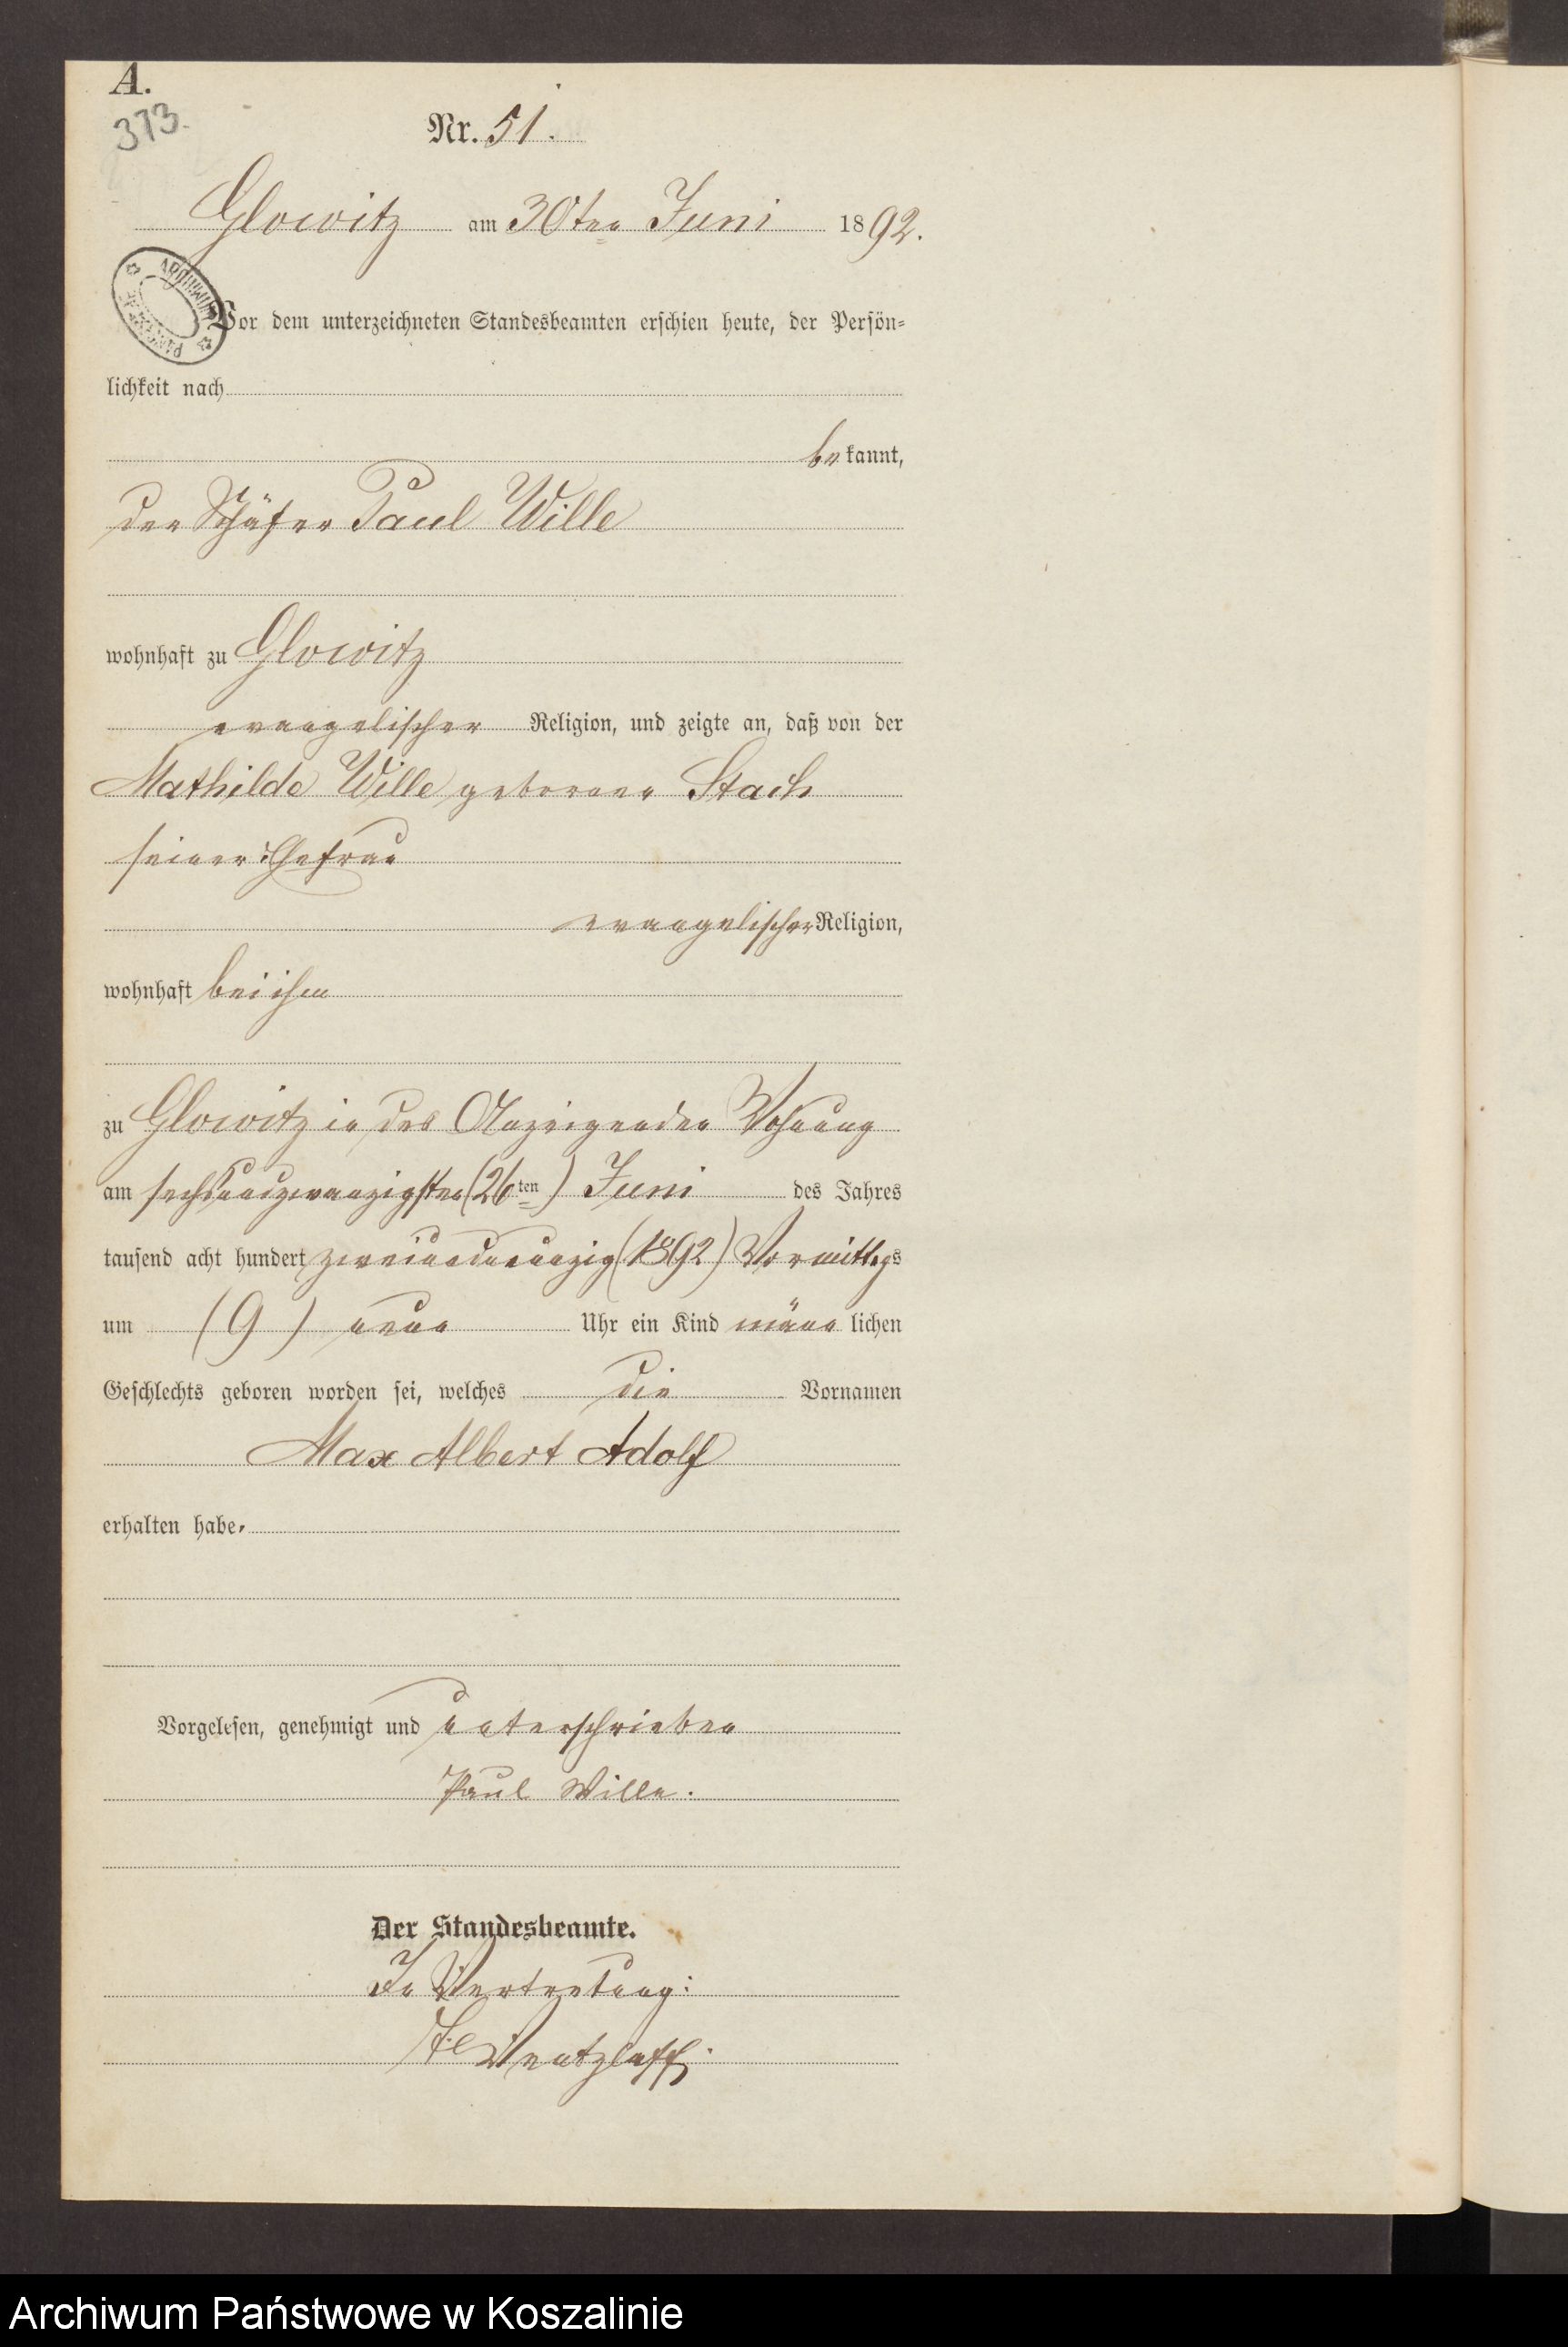 A.
373.
Nr. 51.
Glowitz am 30ten Juni 1892.
ARCHIWUM
Vor dem unterzeichneten Standesbeamten erschien heute, der Persön-
lichkeit nach
bekannt,
der Schäfer Paul Wille
wohnhaft zu Glowitz
evangelischer Religion, und zeigte an, daß von der
Mathilde Wille geborene Stach
seiner Ehefrau
evangelischer Religion,
wohnhaft bei ihm
zu Glowitz in des Anzeigenden Wohnung
am sechsundzwanzigsten (26ten) Juni des Jahres
tausend acht hundert zweiundneunzig (1892) Vormittags
um (9) neun Uhr ein Kind männlichen
Geschlechts geboren worden sei, welches die Vornamen
Max Albert Adolf
erhalten habe.
Vorgelesen, genehmigt und unterschrieben
Paul Wille.
Der Standesbeamte.
In Vertretung:
Wentzlaff.
Archiwum Państwowe w Koszalinie